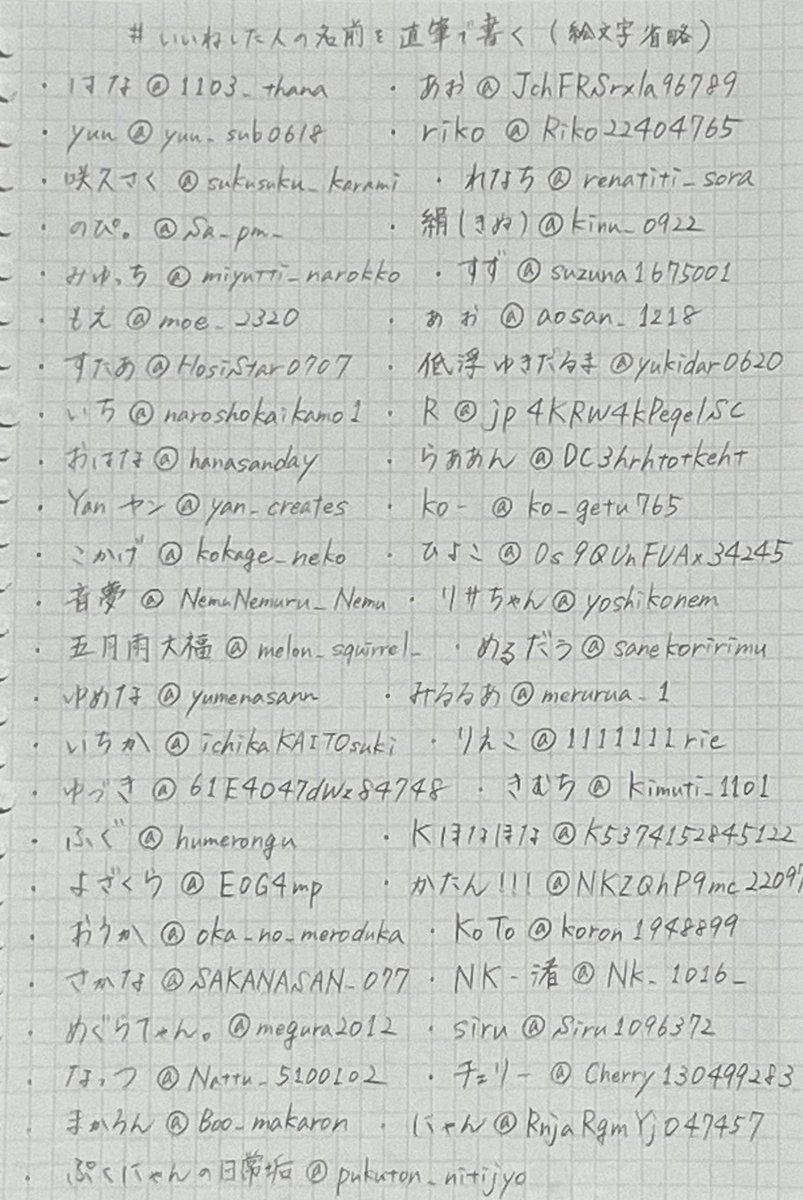 # いいねした人の名前を直筆で書く（絵文字省略）
・はな@1103_thana ・あお@JchFRSrxla96789
・yuu@yuu_sub0618 ・riko@Riko22404765
・咲久さく@sukusuku_karami ・れなち@renatiti_sora
・のぴ。@Sa_pm_ ・絹(きぬ)@kinu_0922
・みゆっち@miyutti_narokko ・すず@suzuna1675001
・もえ@moe_2320 ・あお@aosan_1218
・すたあ@HosiStar0707 ・低浮ゆきだるま@yukidar0620
・いち@naroshokaikamo1 ・R@jp4KRW4kPegelSC
・おはな@hanasanday ・らぁあん@DC3hrhtotkeht
・Yanヤン@yan_creates ・ko-@ko_getu765
・こかげ@kokage_neko ・ひよこ@Os9QUnFUAx34245
・音夢@NemuNemuru_Nemu ・リサちゃん@yoshikonem
・五月雨大福@melon_squirrel_ ・めるだう@sanekoririmu
・ゆめな@yumenasann ・みるるあ@merurua_1
・いちか@ichikaKAITOsuki ・りえこ@1111111rie
・ゆづき@61E4047dWz84748 ・きむち@kimuti_1101
・ふぐ@humerongu ・Kほなほな@K5374152845122
・よざくら@EOG4mp ・かたん!!!@NKZQhP9mc22097
・おうか@oka_no_meroduka ・KoTo@koron1948899
・さかな@SAKANASAN_077 ・NK-渚@Nk_1016_
・めぐらてゃん。@megura2012 ・siru@Siru1096372
・なっつ@Nattu_5100102 ・チェリー@Cherry130499283
・まかろん@Boo_makaron ・にゃん@RnjaRgmYj047457
・ぷくにゃんの日常垢@pukuton_nitijyo